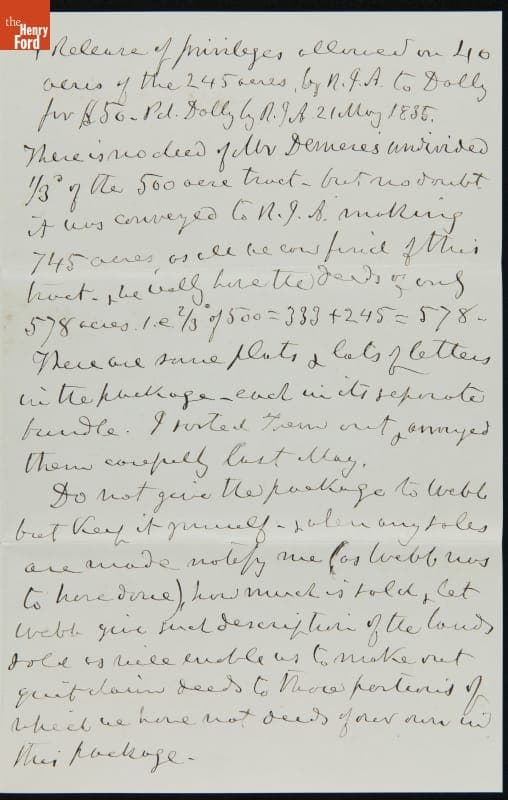 the
Henry
Ford
Release of privileges allowed on 40
acres of the 245 acres, by R.J.A. to Dolly
for $50 - Pd. Dolly by R.J.A 21 May 1835.
There is no deed of Mr Demeres undivided
1/3d of the 500 acre tract - but no doubt
it was conveyed to R.J.A. making
745 acres, as all we can find of this
tract - we really have the deeds of only
578 acres. i.e 2/3ds of 500 = 333 + 245 = 578 -
There are some plats & lots of letters
in the package - each in its separate
bundle. I sorted them out & arranged
them carefully last May.
Do not give the package to Webb
but keep it yourself - & when any sales
are made notify me (as Webb was
to have done), how much is sold, & let
Webb give such description of the lands
sold as will enable us to make out
quit claim deeds to those portions of
which we have not deeds of our own in
this package -